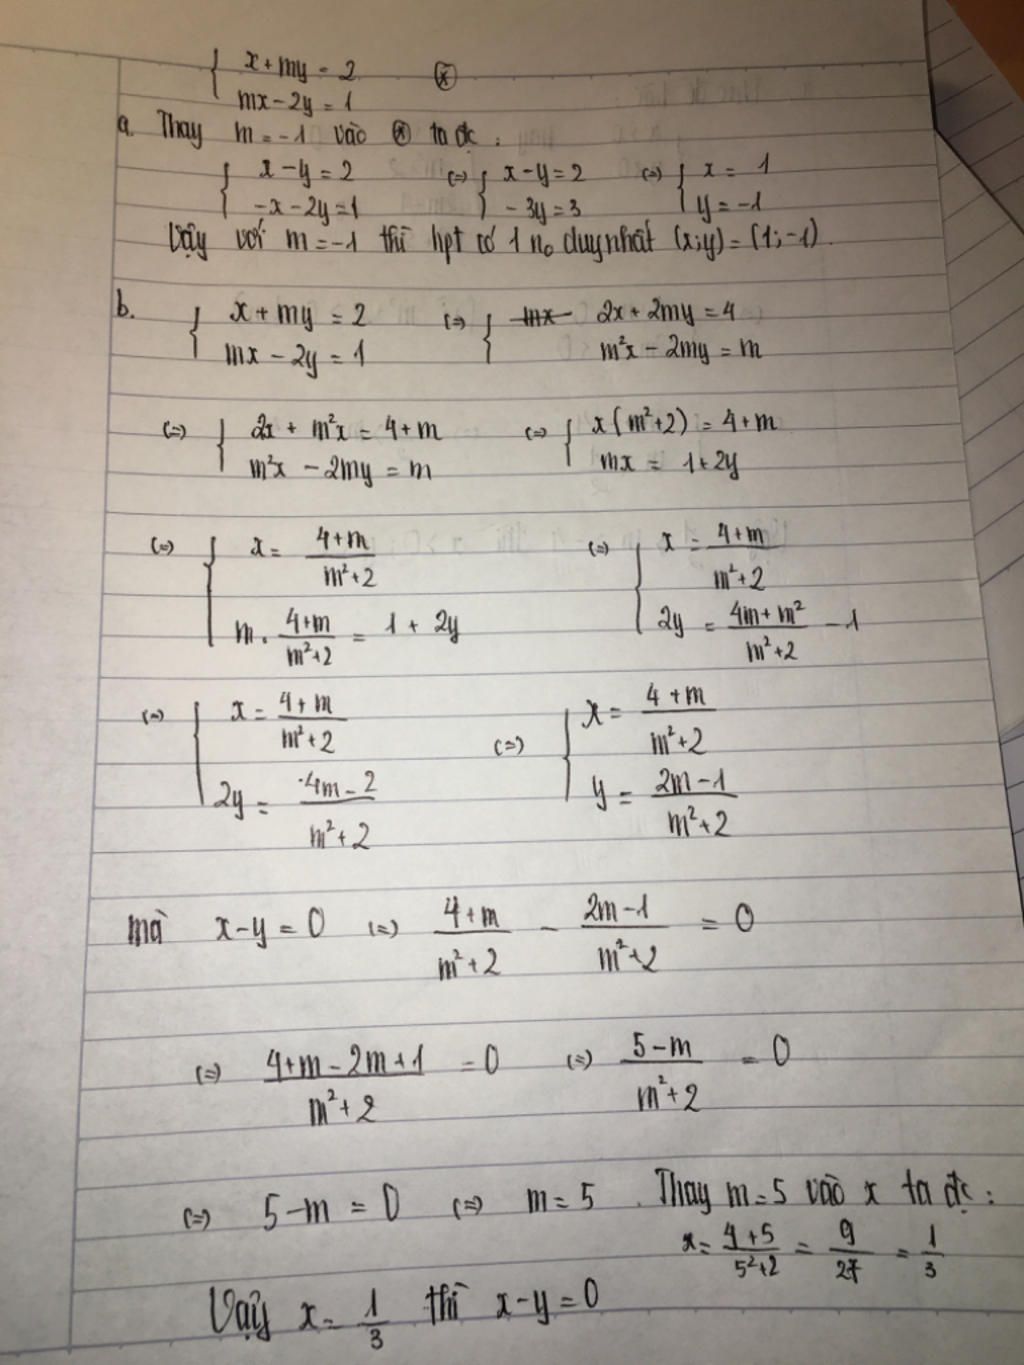 { x + my = 2 ⊛
{ mx - 2y = 1
a. Thay m = -1 vào ⊛ ta đc :
{ x - y = 2 (=) { x - y = 2 (=) { x = 1
{ -x - 2y = 1 { -3y = 3 { y = -1
Vậy với m = -1 thì hpt có 1 no duy nhất (x;y) = (1;-1).
b. { x + my = 2 (=) { mx 2x + 2my = 4
{ mx - 2y = 1 { m²x - 2my = m
(=) { 2x + m²x = 4+m (=) { x(m²+2) = 4+m
{ m²x - 2my = m { mx = 1+2y
(=) { x = (4+m)/(m²+2) (=) { x = (4+m)/(m²+2)
{ m . (4+m)/(m²+2) = 1 + 2y { 2y = (4m+m²)/(m²+2) - 1
(=) { x = (4+m)/(m²+2) (=) { x = (4+m)/(m²+2)
{ 2y = (4m-2)/(m²+2) { y = (2m-1)/(m²+2)
mà x-y = 0 (=) (4+m)/(m²+2) - (2m-1)/(m²+2) = 0
(=) (4+m-2m+1)/(m²+2) = 0 (=) (5-m)/(m²+2) = 0
(=) 5-m = 0 (=) m = 5 . Thay m = 5 vào x ta đc :
x = (4+5)/(5²+2) = 9/27 = 1/3
Vậy x = 1/3 thì x-y = 0